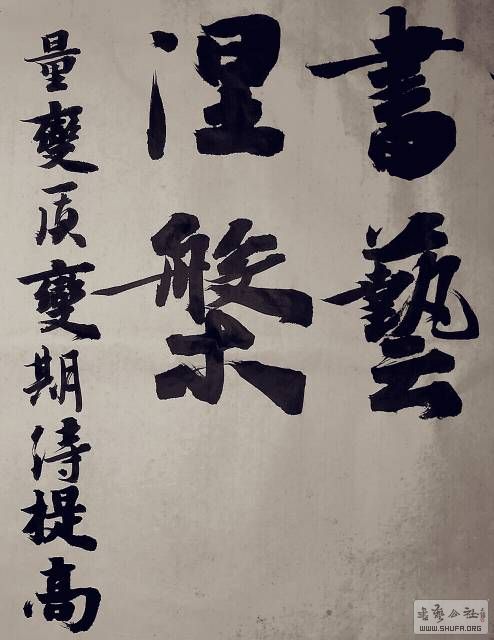 書藝
涅槃
量變质變期待提高
書藝公社
WWW.SHUFA.ORG